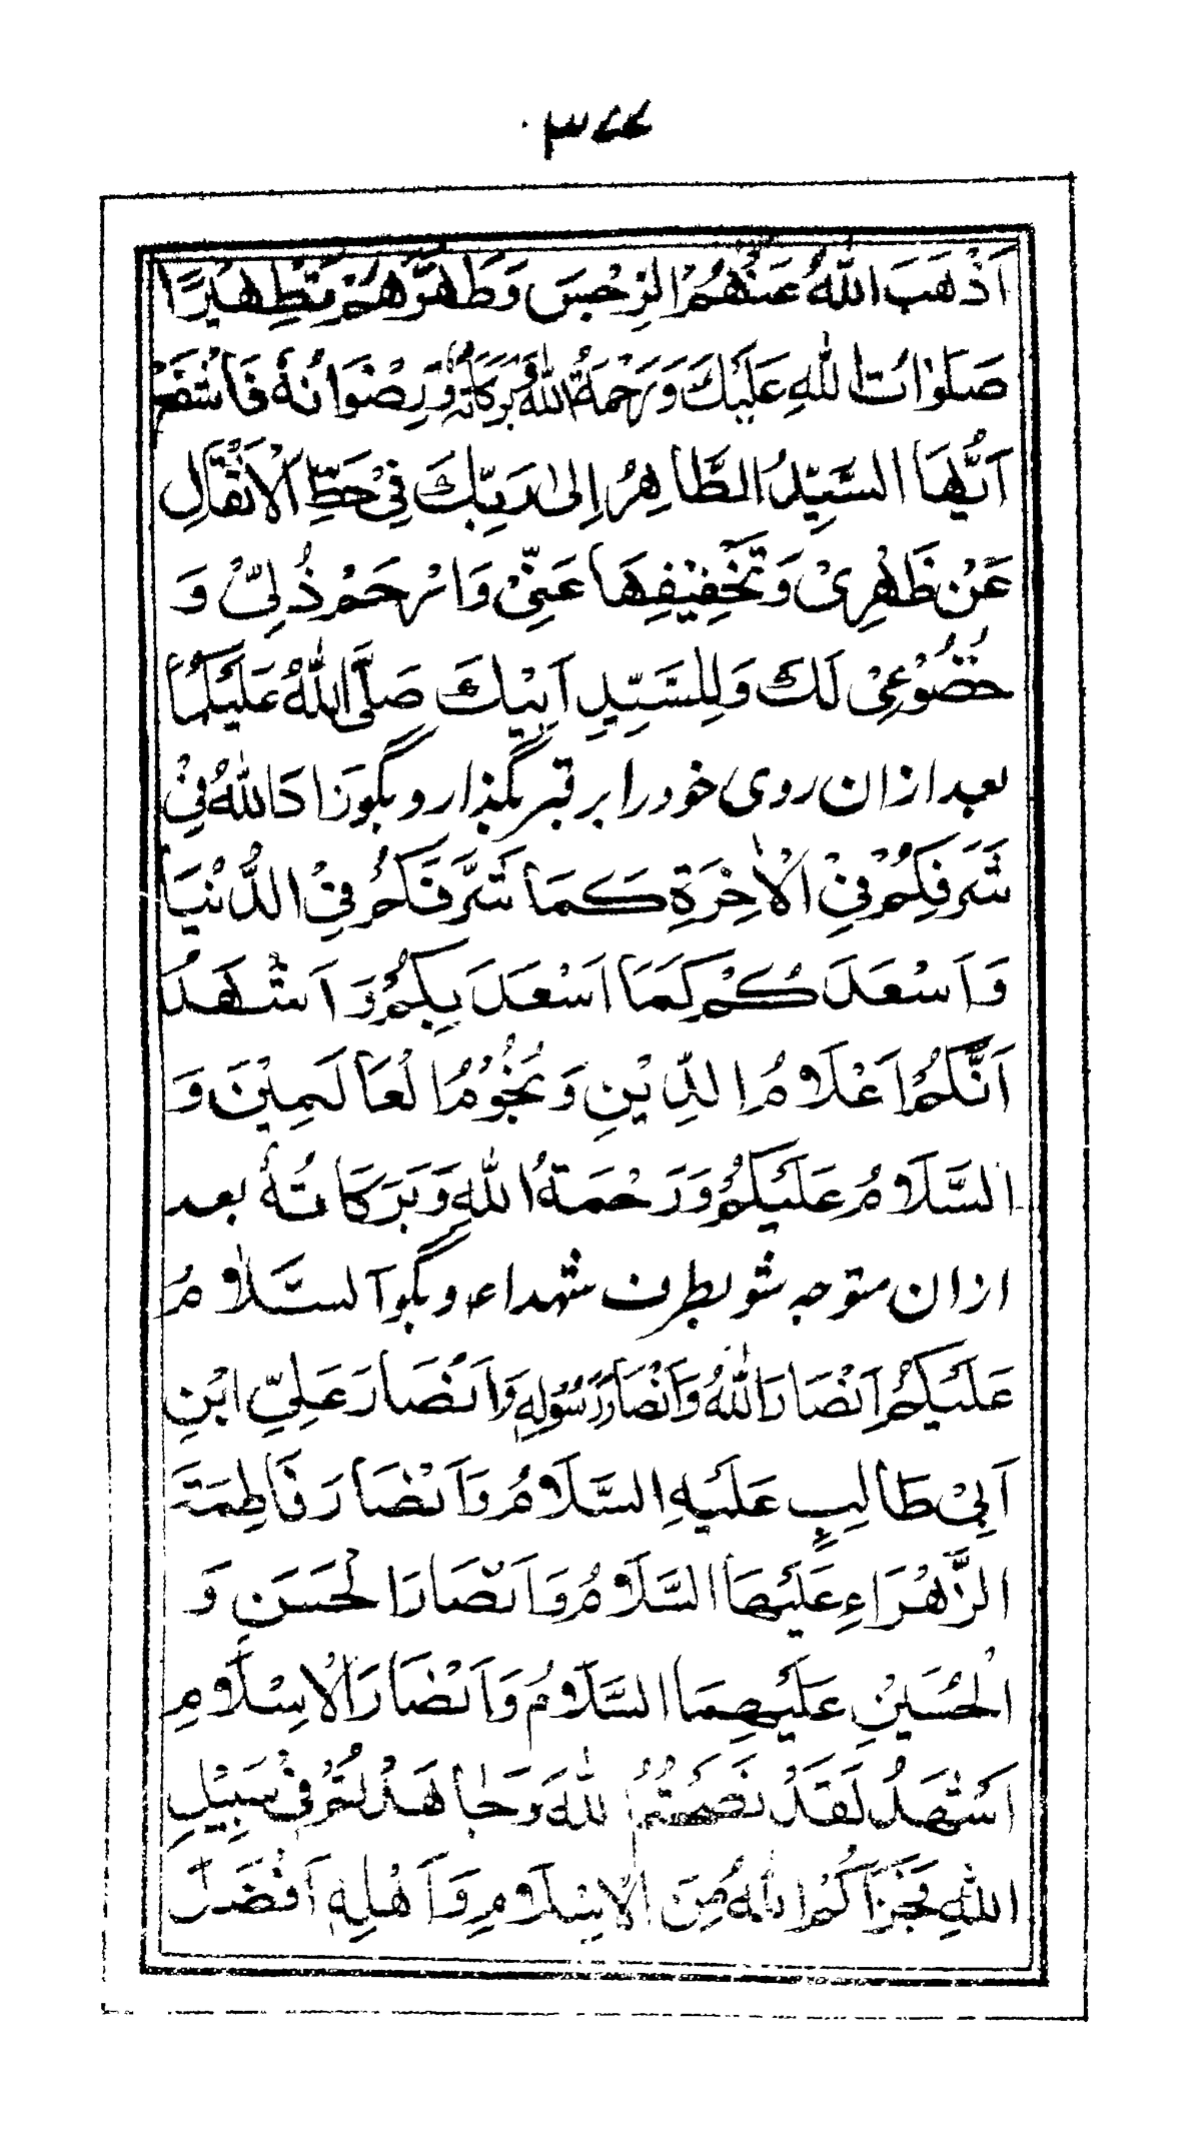 ۳۷۷
اَذْهَبَ اللّٰهُ عَنْهُمُ الرِّجْسَ وَطَهَّرَهُمْ تَطْهِيْرًا
صَلَوٰاتُ اللّٰهِ عَلَيْكَ وَرَحْمَةُ اللّٰهِ وَبَرَكَاتُهٗ وَرِضْوَانُهٗ فَاشْفَعْ
اَيُّهَا السَّيِّدُ الطَّاهِرُ اِلىٰ رَبِّكَ فِيْ حَطِّ الْاَثْقَالِ
عَنْ ظَهْرِىْ وَتَخْفِيْفِهَا عَنِّىْ وَارْحَمْ ذُلِّىْ وَ
خُضُوْعِىْ لَكَ وَلِلسَّيِّدِ اَبِيْكَ صَلَّى اللّٰهُ عَلَيْكُمَا
بعد ازان روى خود را بر قبر بگذار و بگو زَادَ اللّٰهُ فِىْ
شَرَفِكُمْ فِىْ الْاٰخِرَةِ كَمَا شَرَّفَكُمْ فِىْ الدُّنْيَا
وَاَسْعَدَكُمْ كَمَا اَسْعَدَ بِكُمْ وَ اَشْهَدُ
اَنَّكُمْ اَعْلَامُ الدِّيْنِ وَنُجُوْمُ الْعَالَمِيْنَ وَ
السَّلَامُ عَلَيْكُمْ وَرَحْمَةُ اللّٰهِ وَبَرَكَاتُهٗ بعد
ازان متوجه شو بطرف شهداء و بگو اَلسَّلَامُ
عَلَيْكُمْ اَنْصَارَ اللّٰهُ وَاَنْصَارَ رَسُوْلِهٖ وَاَنْصَارَ عَلِيِّ ابْنِ
اَبِىْ طَالِبٍ عَلَيْهِ السَّلَامُ وَاَنْصَارَ فَاطِمَةَ
الزَّهْرَاءِ عَلَيْهَا السَّلَامُ وَاَنْصَارَ الْحَسَنِ وَ
الْحُسَيْنِ عَلَيْهِمَا السَّلَامُ وَاَنْصَارَ الْاِسْلَامِ
اَشْهَدُ لَقَدْ نَصَحْتُمُ لِلّٰهِ وَجَاهَدْتُمْ فِىْ سَبِيْلِ
اللّٰهِ فَجَزَاكُمُ اللّٰهُ مِنَ الْاِسْلَامِ وَاَهْلِهٖ اَفْضَلَ